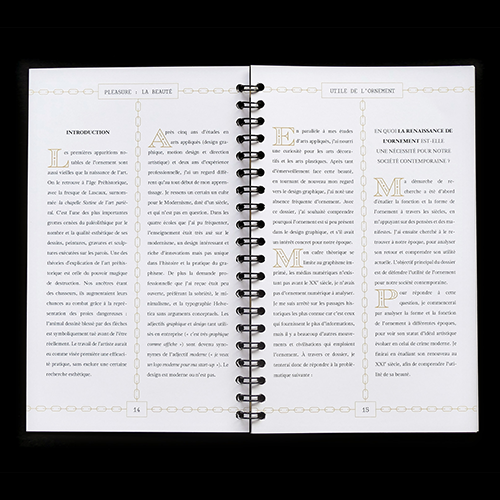 PLEASURE : LA BEAUTÉ
INTRODUCTION
Les premières apparitions no-
tables de l'ornement sont
aussi vieilles que la naissance de l'art.
On le retrouve à l'âge Préhistorique,
avec la fresque de Lascaux, surnom-
mée la chapelle Sixtine de l'art parié-
tal. C'est l'une des plus importantes
grottes ornées du paléolithique par le
nombre et la qualité esthétique de ses
dessins, peintures, gravures et sculp-
tures exécutées sur les parois. Une des
théories d'explication de l'art préhis-
torique est celle du pouvoir magique
de destruction. Nos ancêtres étant
des chasseurs, ils augmentaient leurs
chances au combat grâce à la repré-
sentation des proies dangereuses :
l'animal dessiné blessé par des flèches
est symboliquement tué avant de l'être
réellement. Le travail de l'artiste aurait
eu comme visée première une efficaci-
té pratique, sans exclure une certaine
recherche esthétique.
Après cinq ans d'études en
arts appliqués (design gra-
phique, motion design et direction
artistique) et deux ans d'expérience
professionnelle, j'ai un regard diffé-
rent qu'au tout début de mon appren-
tissage. Je me suis tout de suite prise
pour le Modernisme, dont d'un siècle,
et qui n'est pas en question. Dans les
quatre écoles que j'ai pu fréquenter,
l'enseignement était très axé sur le
modernisme, un design intéressant et
riche d'innovations mais pas unique
dans l'Histoire et la pratique du gra-
phisme. De plus la demande pro-
fessionnelle que j'ai reçue était peu
ouverte, préférant la sobriété, le mi-
nimalisme, et la typographie Helve-
tica sans arguments conceptuels. Les
adjectifs graphique et design tant utili-
sés en entreprise (« c'est très graphique
comme affiche ») sont devenus syno-
nymes de l'adjectif moderne (« je veux
un logo moderne pour ma start-up »). Le
design est moderne ou n'est pas.
14
UTILE DE L'ORNEMENT
En parallèle à mes études
d'arts appliqués, j'ai nourri
une curiosité pour les arts décora-
tifs et les arts plastiques. Après tant
d'émerveillement face cette beauté,
en tournant de nouveau mon regard
vers le design graphique, j'ai noté une
absence fréquente d'ornement. Avec
ce dossier, j'ai souhaité comprendre
pourquoi l'ornement est si peu présent
dans le design graphique, et s'il avait
un intérêt concret pour notre époque.
Mon cadre théorique se
limite au graphisme im-
primé, les médias numériques n'exis-
tant pas avant le XXᵉ siècle, je n'avais
pas d'exemple antérieur à analyser.
Je me suis arrêté sur les passages his-
toriques les plus connus car c'est ceux
qui fournissent le plus d'informations,
mais il y a beaucoup d'autres mouve-
ments et civilisations qui emploient
l'ornement. À travers ce dossier, je
tenterai donc de répondre à la problé-
matique suivante :
EN QUOI LA RENAISSANCE DE
L'ORNEMENT EST-ELLE
UNE NÉCESSITÉ POUR NOTRE
SOCIÉTÉ CONTEMPORAINE ?
Ma démarche de re-
cherche a été d'abord
d'étudier la fonction et la forme de
l'ornement à travers les siècles, en
m'appuyant sur des articles et des ma-
nifestes. J'ai ensuite cherché à le re-
trouver à notre époque, pour analyser
son retour et comprendre son utilité
actuelle. L'objectif principal du dossier
est de défendre l'utilité de l'ornement
pour notre société contemporaine.
Pour répondre à cette
question, je commencerai
par analyser la forme et la fonction
de l'ornement à différentes époques,
pour voir son statut d'idéal artistique
évoluer en celui de crime moderne. Je
finirai en étudiant son renouveau au
XXIᵉ siècle, afin de comprendre l'uti-
lité de sa beauté.
15